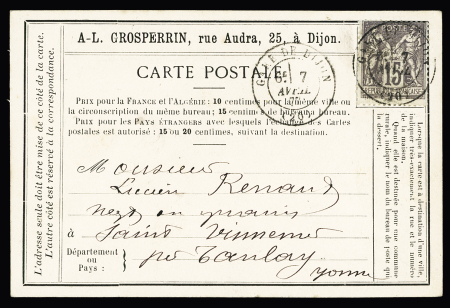 A-L. GROSPERRIN, rue Audra, 25, à Dijon.
CARTE POSTALE
PRIX pour la FRANCE et l'ALGÉRIE : 10 centimes pour la même ville ou
la circonscription du même bureau; 15 centimes de bureau à bureau.
PRIX pour les PAYS ÉTRANGERS avec lesquels l'échange des Cartes
postales est autorisé : 15 ou 20 centimes, suivant la destination.
Monsieur
Lucien Renaud
Negt en grains
à Saint Vinnemer
Département
ou
Pays :
par Tanlay
Yonne
L'adresse seule doit être mise de ce côté de la carte.
L'autre côté est réservé à la correspondance.
Lorsque la carte est à destination d'une ville,
indiquer très-exactement la rue et le numéro
de la maison.
Quand elle est destinée pour une commune
rurale, indiquer le nom du bureau de poste qui
la dessert.
GARE DE DIJON
7
AVRIL
POSTE
15